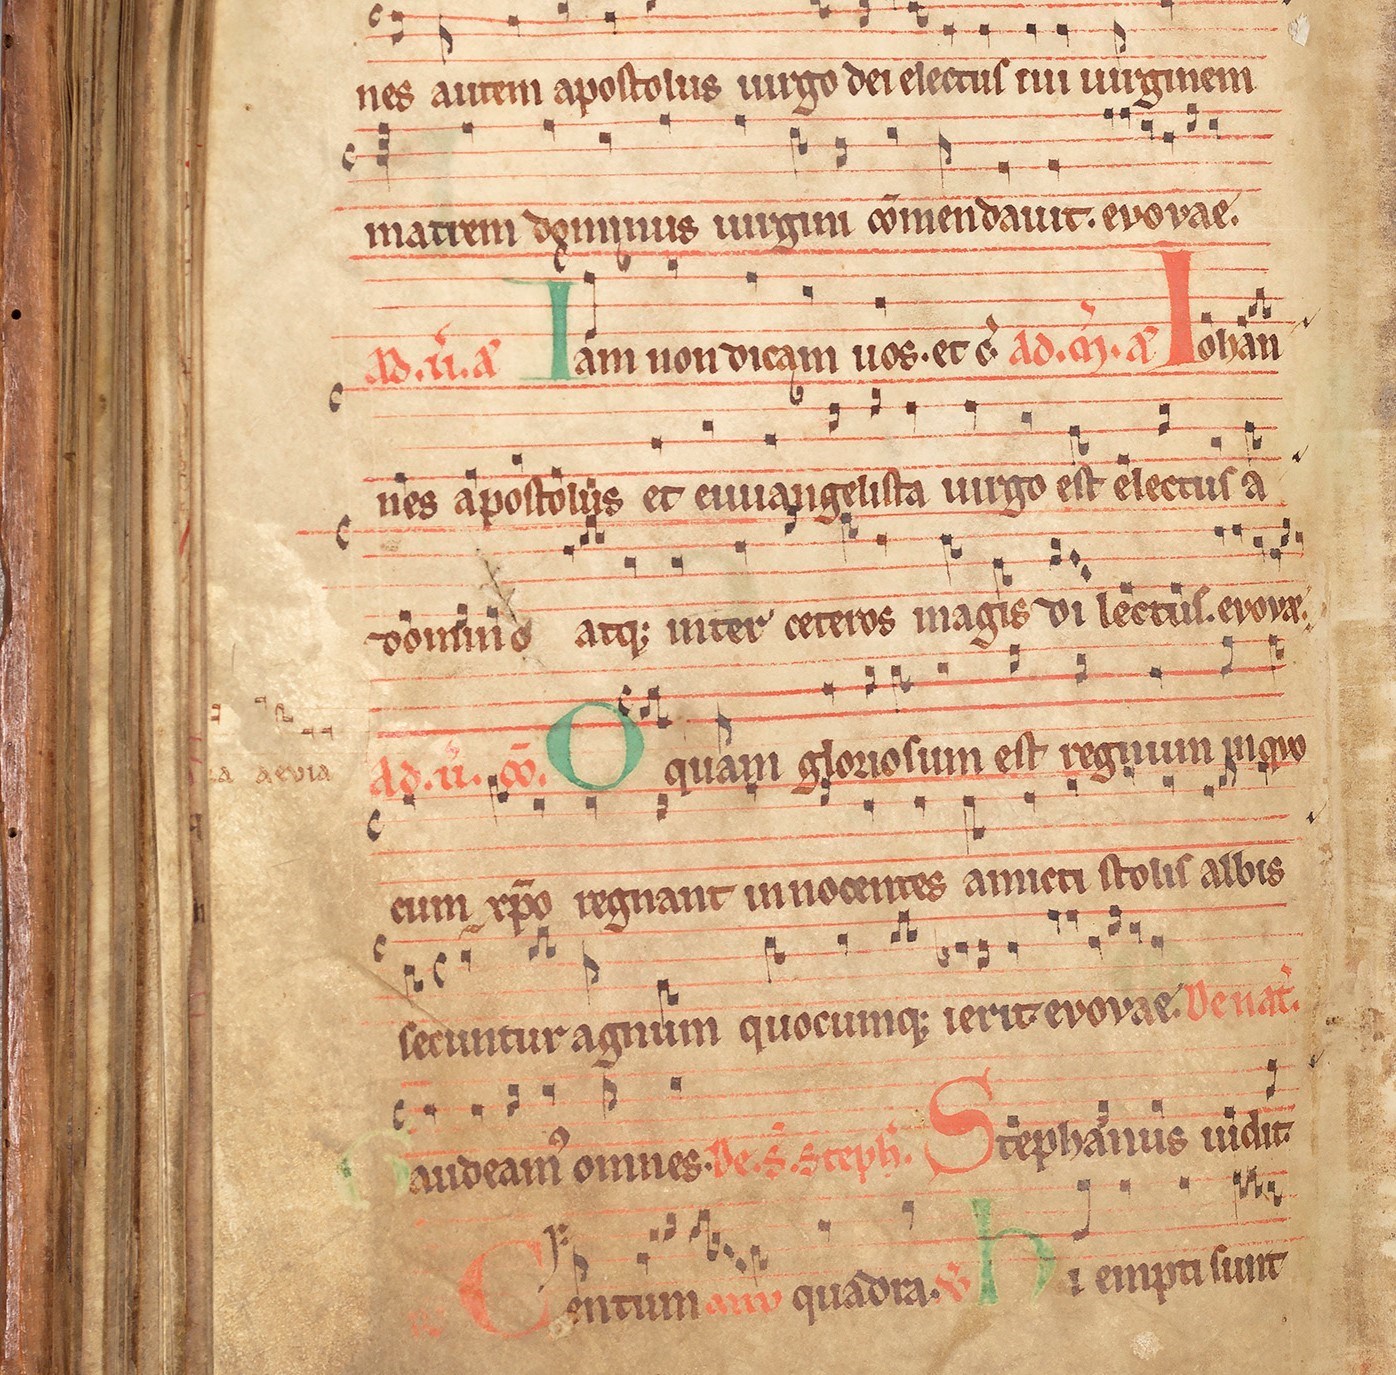 nes autem apostolus uirgo dei electus cui uirginem
matrem dominus uirgini cōmendauit. evovae.
Iam non dicam uos. et c̄. Ad. m̄. a͞e Iohan
nes apostolus et euuangelista uirgo est electus a
domino atq; inter ceteros magis di lectus. evovae.
aevia
Ad. v̄. cō. O quam gloriosum est regnum in quo
cum xp̄o regnant innocentes amicti stolis albis
secuntur agnum quocumq; ierit evovae. De nat̄.
audeam⁹ omnes. De. S̄. Steph̄. Stephanus uidit
Centum quadra. v̄ hi empti sunt